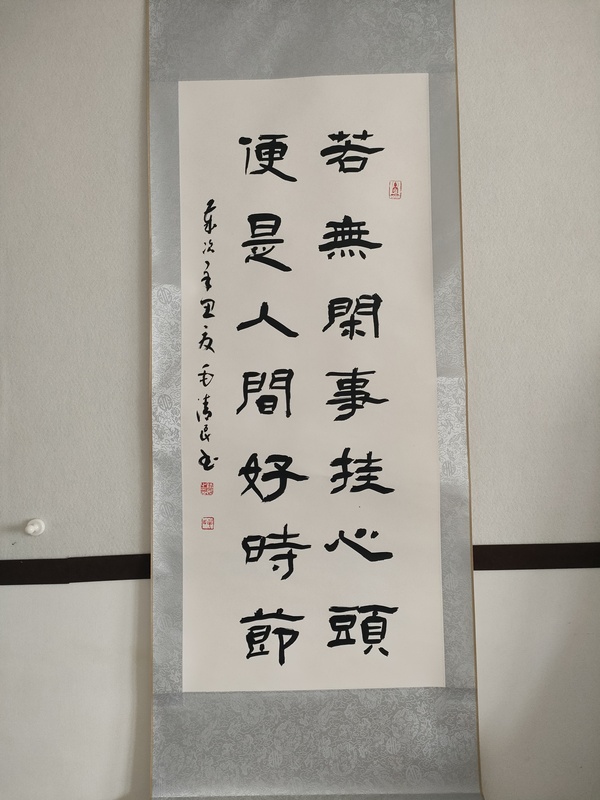 若無閑事挂心頭
便是人間好時節
歲次辛丑夏 毛清民书